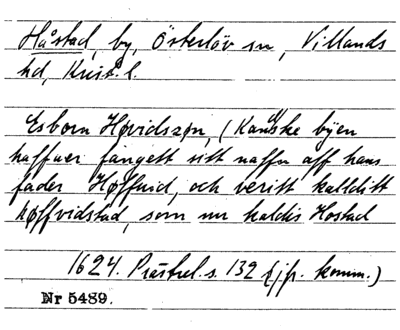 Håstad, by, Österlöv sn, Villands
hd, Krist. l.
Esborn Høvidszøn, (Kanske byen
haffuer fangett sitt naffn aff hans
fader Høffuid, och veritt kallditt
Høffvidstad, som nu kaldis Hostad
1624. Prästrel. s. 132 (jfr. komm.)
Nr 5489.